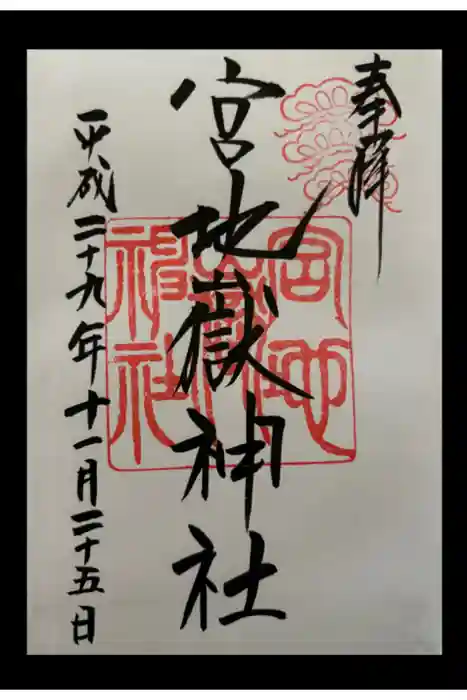 奉拝
宮地嶽神社
宮地
嶽
神社
平成二十九年十一月二十五日